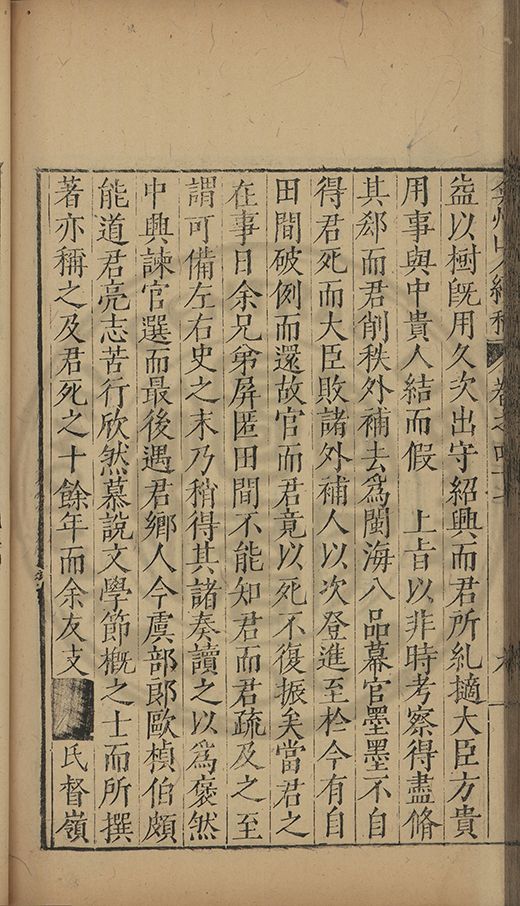 弇州山人續稿 卷之四十
益以樹旣用久次出守紹興而君所糺擿大臣方貴
用事與中貴人結而假　上旨以非時考察得盡脩
其郄而君削秩外補去爲閩海八品幕官墨墨不自
得君死而大臣敗諸外補人以次登進至於今有自
田間破例而還故官而君竟以死不復振矣當君之
在事日余兄弟屏匿田間不能知君而君疏及之至
謂可備左右史之末乃稍得其諸奏讀之以爲褒然
中興諫官選而最後遇君鄉人今虞部郎歐楨伯頗
能道君亮志苦行欣然慕說文學節槪之士而所撰
著亦稱之及君死之十餘年而余友支
氏督嶺